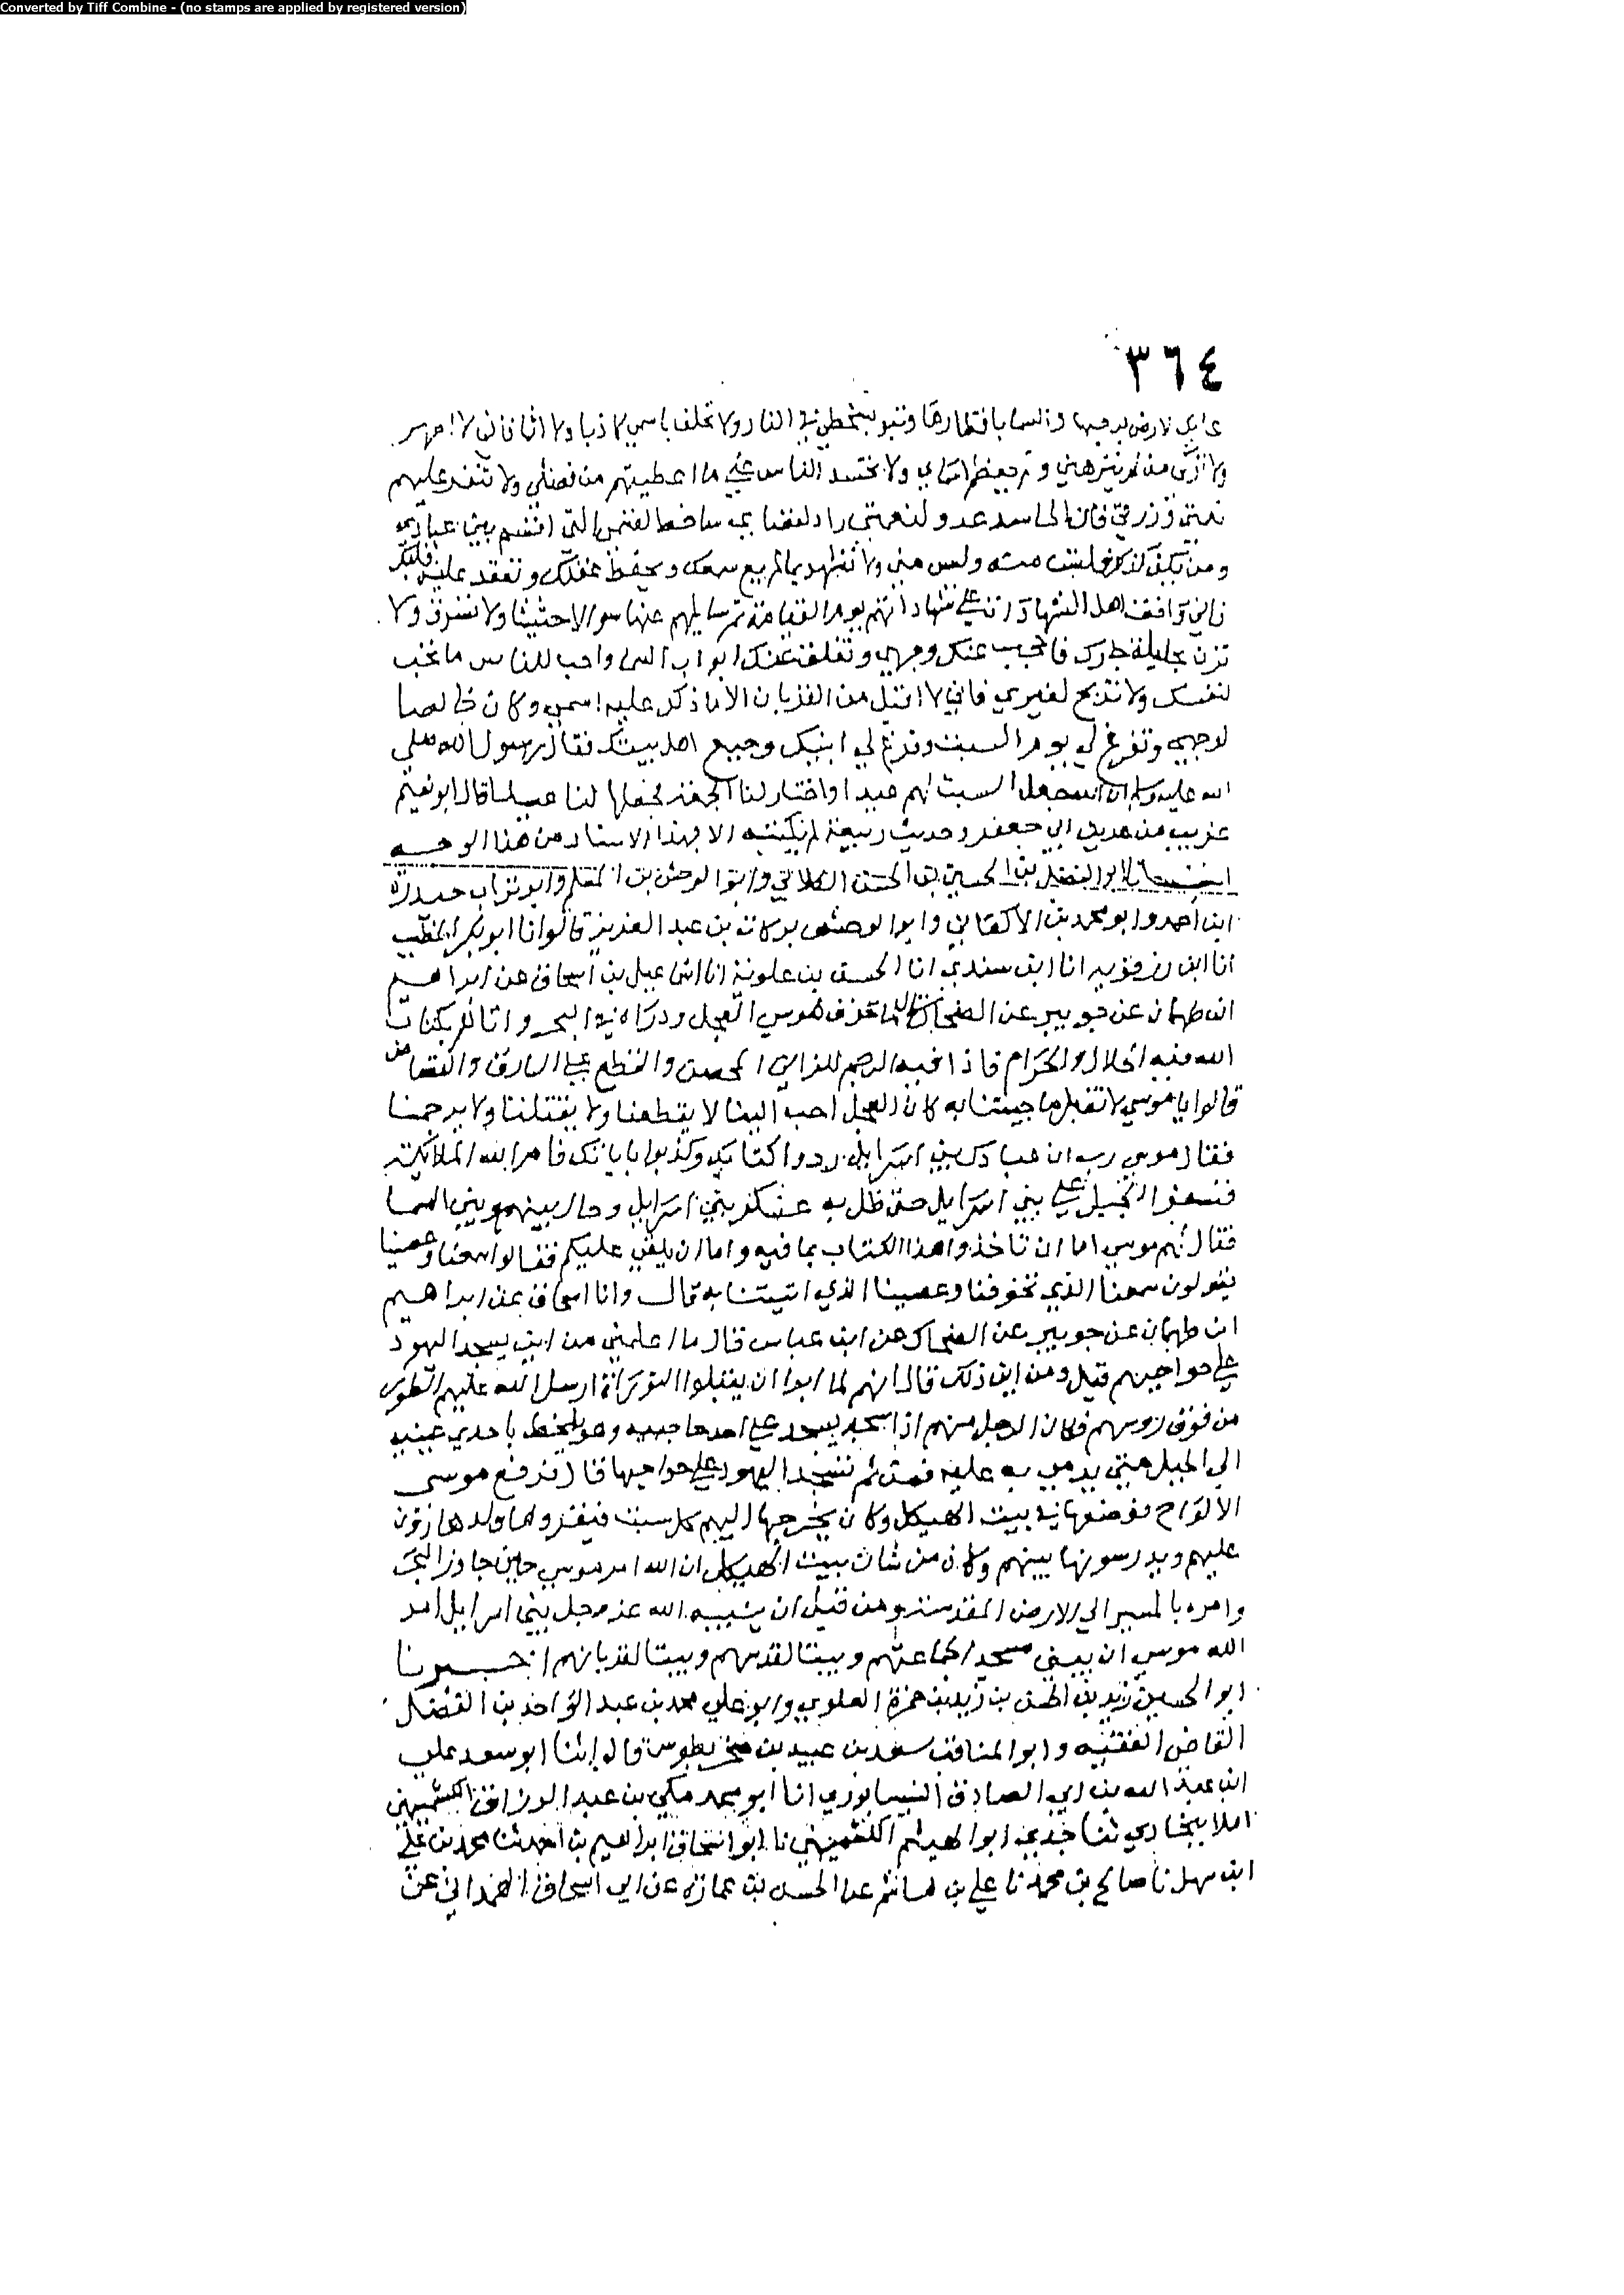 Converted by Tiff Combine - (no stamps are applied by registered version)
٣٦٤
الارض برحبها والسما باقطارها وتبو بسخطي في النار ولا تحلف باسمي كاذبا ولا اثما فاني لا اطهر
ولا ازكي من لم ينزهني ويعظم اسماي ولا تحسد الناس علي ما اعطيتهم من فضلي ولا تنفس عليهم
نعمتي ورزقي فان الحاسد عدو لنعمتي راد لقضاي ساخط لقسمي التي اقسم بين عبادي
ومن يكن كذلك فلست منه وليس مني ولا تشهد بما لم يع سمعك ويحفظ عقلك وتعقد عليه قلبك
فاني واقف اهل الشهادات علي شهاداتهم يوم القيامة ثم سايلهم عنها سوالا حثيثا ولا تسرق ولا
تزن بحليلة جارك فاحجب عنك وجهي وتغلق عنك ابواب السما واحب للناس ما تحب
لنفسك ولا تذبح لغيري فاني لا اقبل من القربان الا ما ذكر عليه اسمي وكان خالصا
لوجهي وتفرغ لي يوم السبت وفرغ لي ابنيك وجميع اهل بيتك فقال رسول الله صلي
الله عليه وسلم ان الله جعل السبت لهم عيدا واختار لنا الجمعة فجعلها لنا عيدا قال ابو نعيم
غريب من حديث ابي جعفر وحديث ربيعة لم نكتبه الا بهذا الاسناد من هذا الوجه
ابو الفضل بن الحسين بن الحسن الكلابي وابو الوحش بن المسلم وابو تراب حيدرة
ابن احمد وابو محمد بن الاكفاني وابو الوحش بركات بن عبد العزيز قالوا نا ابو بكر الخطيب
انا ابن رزقويه انا ابن سندي انا الحسن بن علويه انا اسماعيل بن اسحاق عن ابراهيم
ابن طهمان عن جويبر عن الضحاك قال لما حرق موسي العجل وذراه في البحر واتاهم بكتاب
الله فيه الحلال والحرام فاذا فيه الرجم للزاني المحصن والقطع علي السارق والقصاص
قالوا يا موسي لا نقبل ما جيتنا به كان العجل احب الينا لا يقطعنا ولا يقتلنا ولا يرجمنا
فقال موسي رب ان عبادك بني اسرايل ردوا كتابك وكذبوا باياتك فامر الله الملايكة
فنسفوا الجبل علي بني اسرايل حتى ظل به عسكر بني اسرايل وحال بينهم وبين السما
فقال لهم موسي اما ان تاخذوا هذا الكتاب بما فيه واما ان يلقي عليكم فقالوا سمعنا وعصينا
يقولون سمعنا الذي تخوفنا وعصينا الذي اتيتنا به قال وانا اسحاق عن ابراهيم
ابن طهمان عن جويبر عن الضحاك عن ابن عباس قال ما اعلمني من اين يسجد اليهود
علي حواجبهم قيل ومن اين ذلك قال انهم لما ابوا ان يقبلوا التوراة ارسل الله عليهم الطور
من فوق روسهم فكان الرجل منهم اذا سجد يسجد علي احد حاجبيه وهو يلحظ باحدي عينيه
الي الجبل متي يرمي به عليه فمن ثم تسجد اليهود علي حواجبها قال فرفع موسى
الالواح فوضعها في بيت الهيكل وكان يخرجها اليهم كل سبت فيقروها ولد هارون
عليهم ويدرسونها بينهم وكان من شان بيت الهيكل ان الله امر موسي حين جاوز البحر
وامره بالمسير الي الارض المقدسة ومن قبل ان يتيه الله عز وجل بني اسرايل امر
الله موسي ان يبني مسجدا لجماعتهم وبيتا لقدسهم وبيتا لقربانهم اخبرنا
ابو الحسين زيد بن الحسن بن زيد بن حمزة العلوي وابو علي محمد بن عبد الواحد بن الفضل
القاضي الفقيه وابو المناقب سعد بن عبيد بن صخر بطوس قالوا انا ابو سعد علي
ابن عبد الله بن ابي الصادق النيسابوري انا ابو محمد مكي بن عبد الرزاق الكشميهني
املا ببخاري ثنا جدي ابو الهيثم الكشميهني نا ابو اسحاق ابراهيم بن احمد ثنا محمد بن علي
ابن سهل نا صالح بن محمد نا علي بن هاشم عن الحسن بن عمارة عن ابي اسحاق الهمداني عن